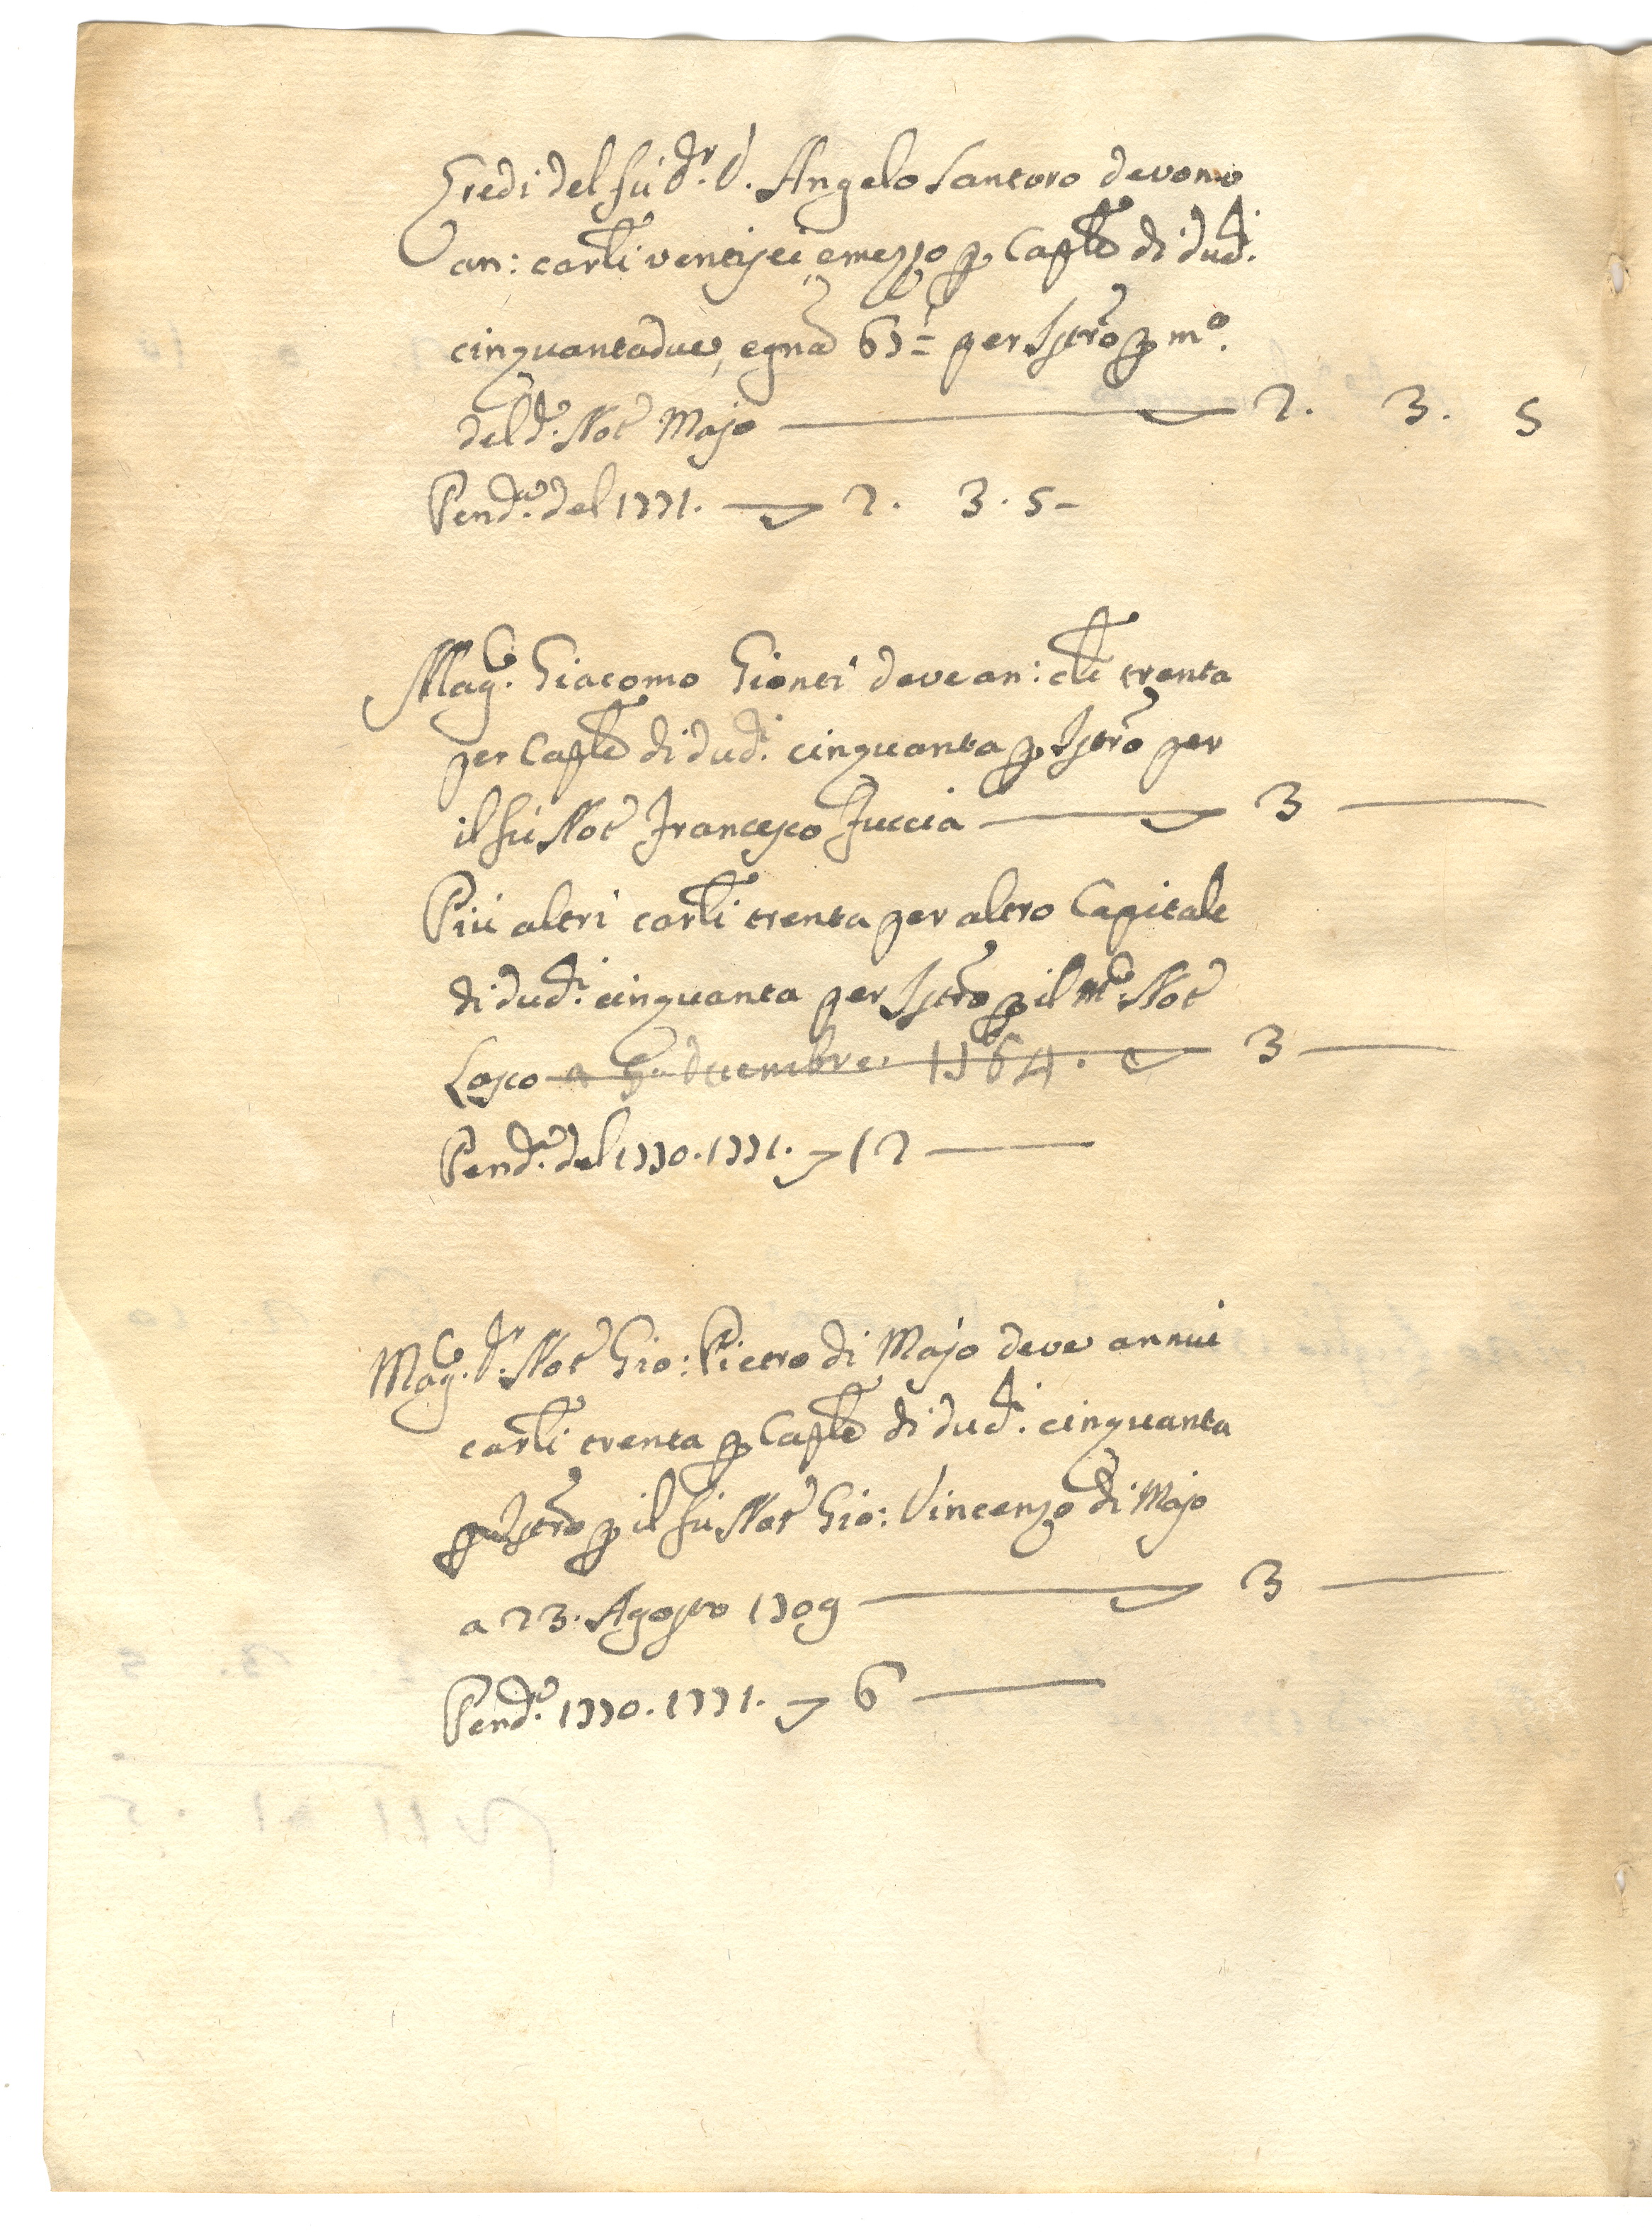 Eredi del fù Dr. D. Angelo Santoro devono
an: carli ventisei, e mezzo p Caple di ducti.
cinquantadue, e gna 67= per Istro p mo.
del do. Not Majo 2. 3. 5
Pendo. del 1771. 2. 3. 5-
Magco. Giacomo Gionti deve an: cli trenta
per Caple di ducti. cinquanta p Istro per
il fù Not Francesco Fuccia 3
Più altri carli trenta per altro Capitale
di ducti. cinquanta per Istro p il mco. Not
Losco a 5 decembre 1764. 3
Pendo. del 1770. 1771. 12
Magco. Dr. Not Gio: Pietro di Majo deve annui
carli trenta p Caple di ducti. cinquanta
p Istro p il fù Not Gio: Vincenzo di Majo
a 23. Agosto 1709 3
Pendo. 1770. 1771. 6